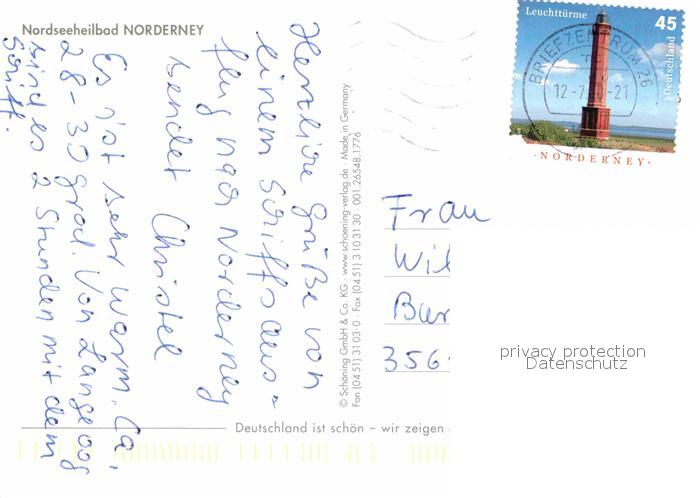 Nordseeheilbad NORDERNEY
Herzliche Grüße von
einem Schiffsaus-
flug nach Norderney
sendet Christel
Es ist sehr warm. Ca,
28-30 grad. Von Langeoog
sind es 2 Stunden mit dem
Schiff.
© Schöning GmbH & Co. KG · www.schoening-verlag.de · Made in Germany
Fon (04 51) 31 03-0 · Fax (04 51) 3 10 31 30 · 001.26548.1776
Leuchttürme
45
Deutschland
NORDERNEY
BRIEFZENTRUM 26
-21
Frau
Wil
Bur
356
privacy protection
Datenschutz
Deutschland ist schön – wir zeigen